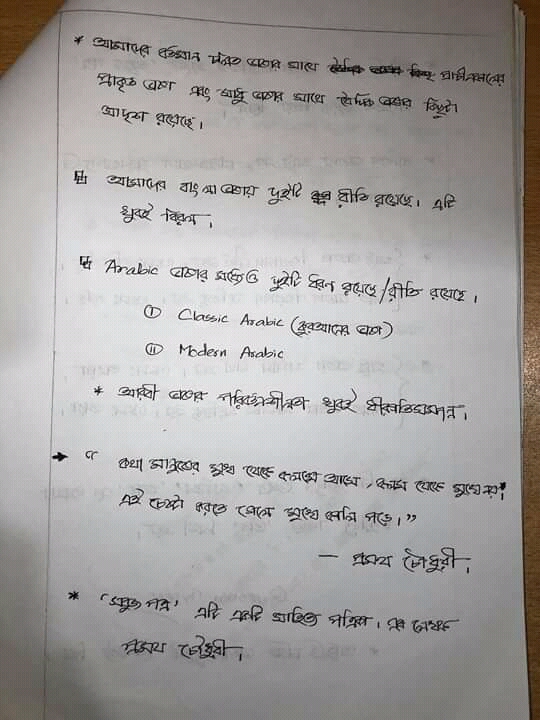 * আমাদের বর্তমান চলিত ভাষার সাথে প্রাচীনকালের
প্রাকৃত ভাষা এবং সাধু ভাষার সাথে বৈদিক ভাষার কিছুটা
আদল রয়েছে।
আমাদের বাংলা ভাষায় দুইটি রীতি রয়েছে। এটি
খুবই বিরল।
Arabic ভাষার মধ্যেও দুইটি ধরন রয়েছে/রীতি রয়েছে।
i Classic Arabic (কুরআনের ভাষা)
ii Modern Arabic
* আরবী ভাষার পরিবর্তনশীলতা খুবই ধীরগতিসম্পন্ন।
→ “ কথা মানুষের মুখ থেকে কলমে আসে, কলম থেকে মুখে নয়।
এই চেষ্টা করতে গেলে মুখে কালি পড়ে।”
— প্রমথ চৌধুরী।
* ‘সবুজ পত্র’ এটি একটি সাহিত্য পত্রিকা। এর লেখক
প্রমথ চৌধুরী।